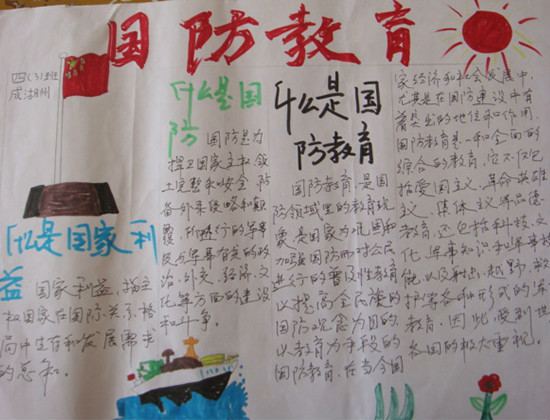 国防教育
四(3)班
成湖州
什么是国
防
国防是为
捍卫国家主权领
土完整和安全,防
备外来侵略和颠
覆,所进行的军事
及与军事有关的政
治,外交,经济,文
化等方面的建设
和斗争。
什么是国家利
益
国家利益,指主
权国家在国际关系格
局中生存和发展需求
的总和。
什么是国
防教育
国防教育,是国
防领域里的教育现
象,是国家为巩固和
加强国防而对公民
进行的普及性教育
以提高全民族的
国防观念为目的,
以教育为手段的
国防教育,在当今国
家经济和社会发展中,
尤其是在国防建设中有
着突出的地位和作用
国防教育是一种全面的
综合的教育,它不仅包
括爱国主义,革命英雄
主义,集体主义等品德
教育,还包括科技,文
化,军事知识和军事技
能,以及射击,越野,救
护等各种形式的军
教育,因此,受到世
各国的极大重视。